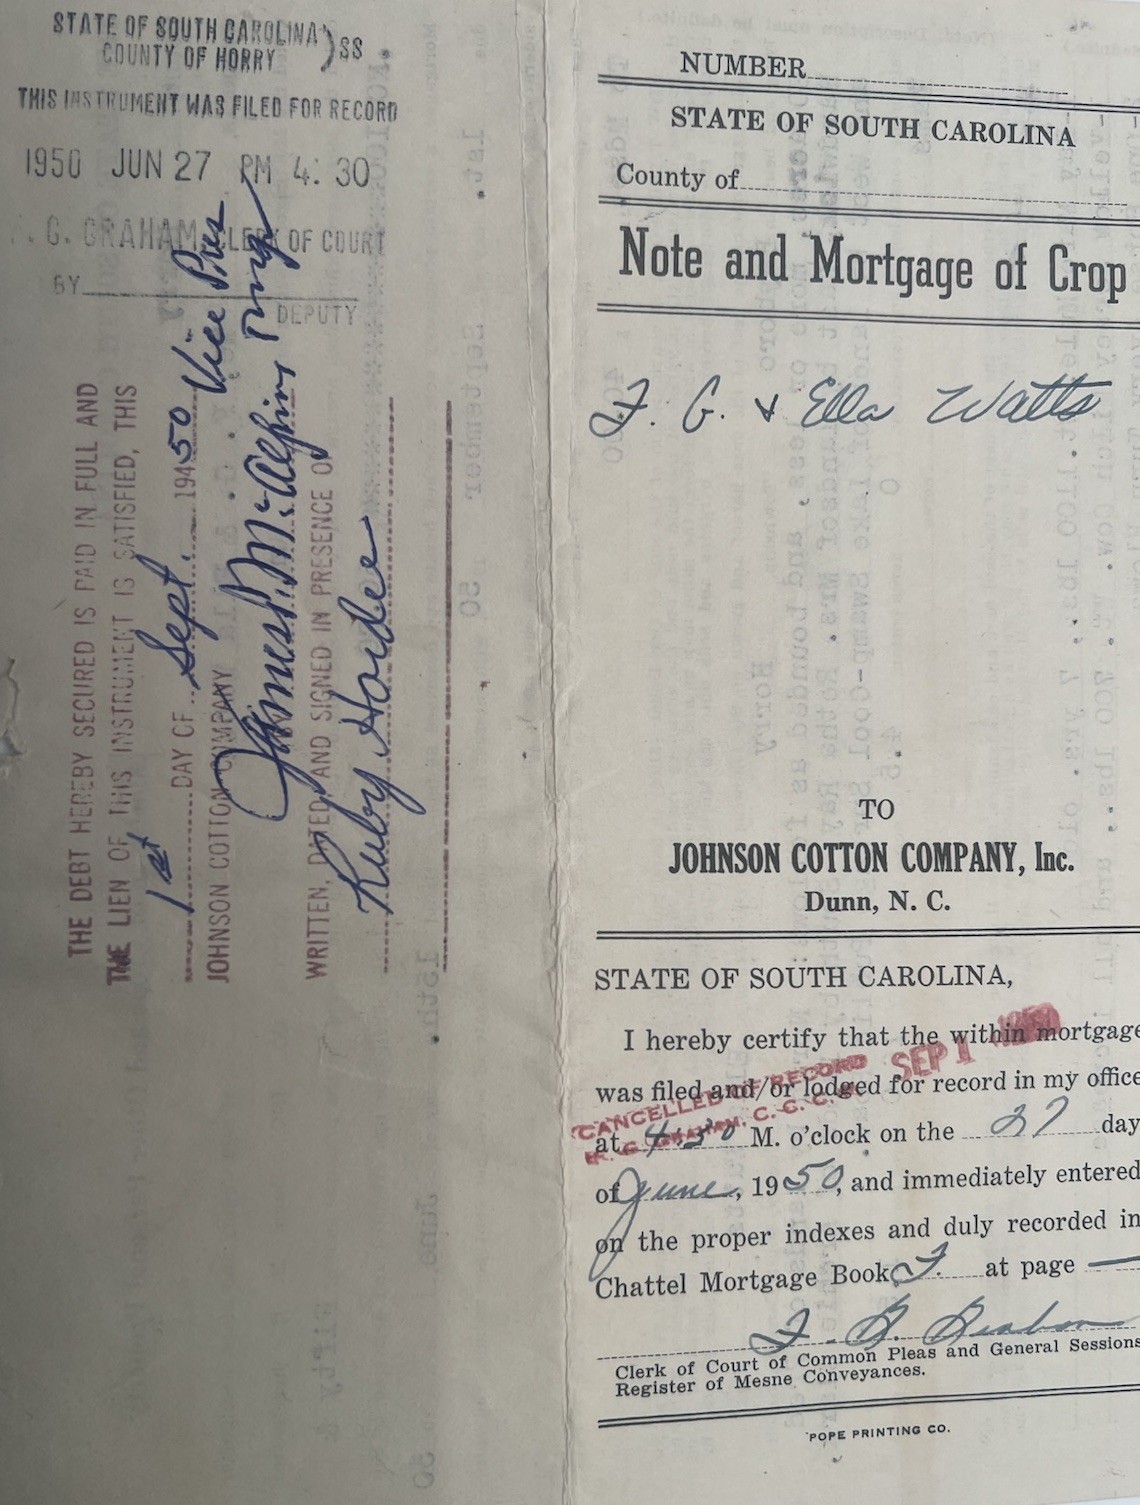 STATE OF SOUTH CAROLINA
COUNTY OF HORRY ) SS
THIS INSTRUMENT WAS FILED FOR RECORD
1950 JUN 27 PM 4:30
. G. GRAHAM, CLERK OF COURT
BY
DEPUTY
THE DEBT HEREBY SECURED IS PAID IN FULL AND
THE LIEN OF THIS INSTRUMENT IS SATISFIED, THIS
1st DAY OF Sept. 19450
JOHNSON COTTON COMPANY Vice Pres
James M. McAlpin
WRITTEN, DATED, AND SIGNED IN PRESENCE OF
Ruby Hordee
NUMBER
STATE OF SOUTH CAROLINA
County of
Note and Mortgage of Crop
F. G. & Ella Watts
TO
JOHNSON COTTON COMPANY, Inc.
Dunn, N. C.
STATE OF SOUTH CAROLINA,
I hereby certify that the within mortgage
was filed and/or lodged for record in my office
at 4:30 M. o'clock on the 27 day
of June, 1950, and immediately entered
on the proper indexes and duly recorded in
Chattel Mortgage Book F. at page —
CANCELLED OF RECORD SEP 1 1950
GRAHAM, C. C. C.
F. G. Graham
Clerk of Court of Common Pleas and General Sessions
Register of Mesne Conveyances.
POPE PRINTING CO.